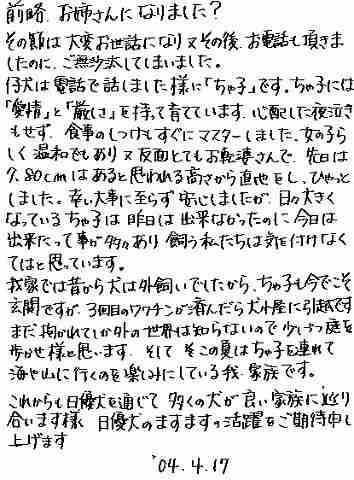 前略 お姉さんになりました?
その節は大変お世話になり又その後、お電話も頂きま
したのに、ご無沙汰してしまいました。
仔犬は電話で話しました様に「ちゃ子」です。ちゃ子には
「愛情」と「厳しさ」を持って育てています。心配した夜泣き
もせず、食事のしつけもすぐにマスターしました、女の子ら
しく温和でもあり又反面とてもお転婆さんで、先日は
7、80cmはあると思われる高さから直地をし、ひやっと
しました。幸い大事に至らず安心しましたが、日々大きく
なっているちゃ子は昨日は出来なかったのに今日は
出来たって事が多々あり飼う私たちは気を付けなく
てはと思っています。
我家では昔から犬は外飼いでしたから、ちゃ子も今でこそ
玄関ですが、3回目のワクチンが済んだら犬小屋に引越です
まだ抱かれてしか外の世界は知らないので少しづつ庭を
歩かせ様と思います。そして そこの夏はちゃ子を連れて
海や山に行くのを楽しみにしている我家族です。
これからも日優犬を通じて 多くの犬が良い家族に巡り
合います様、日優犬のますますの活躍をご期待申し
上げます
'04.4.17